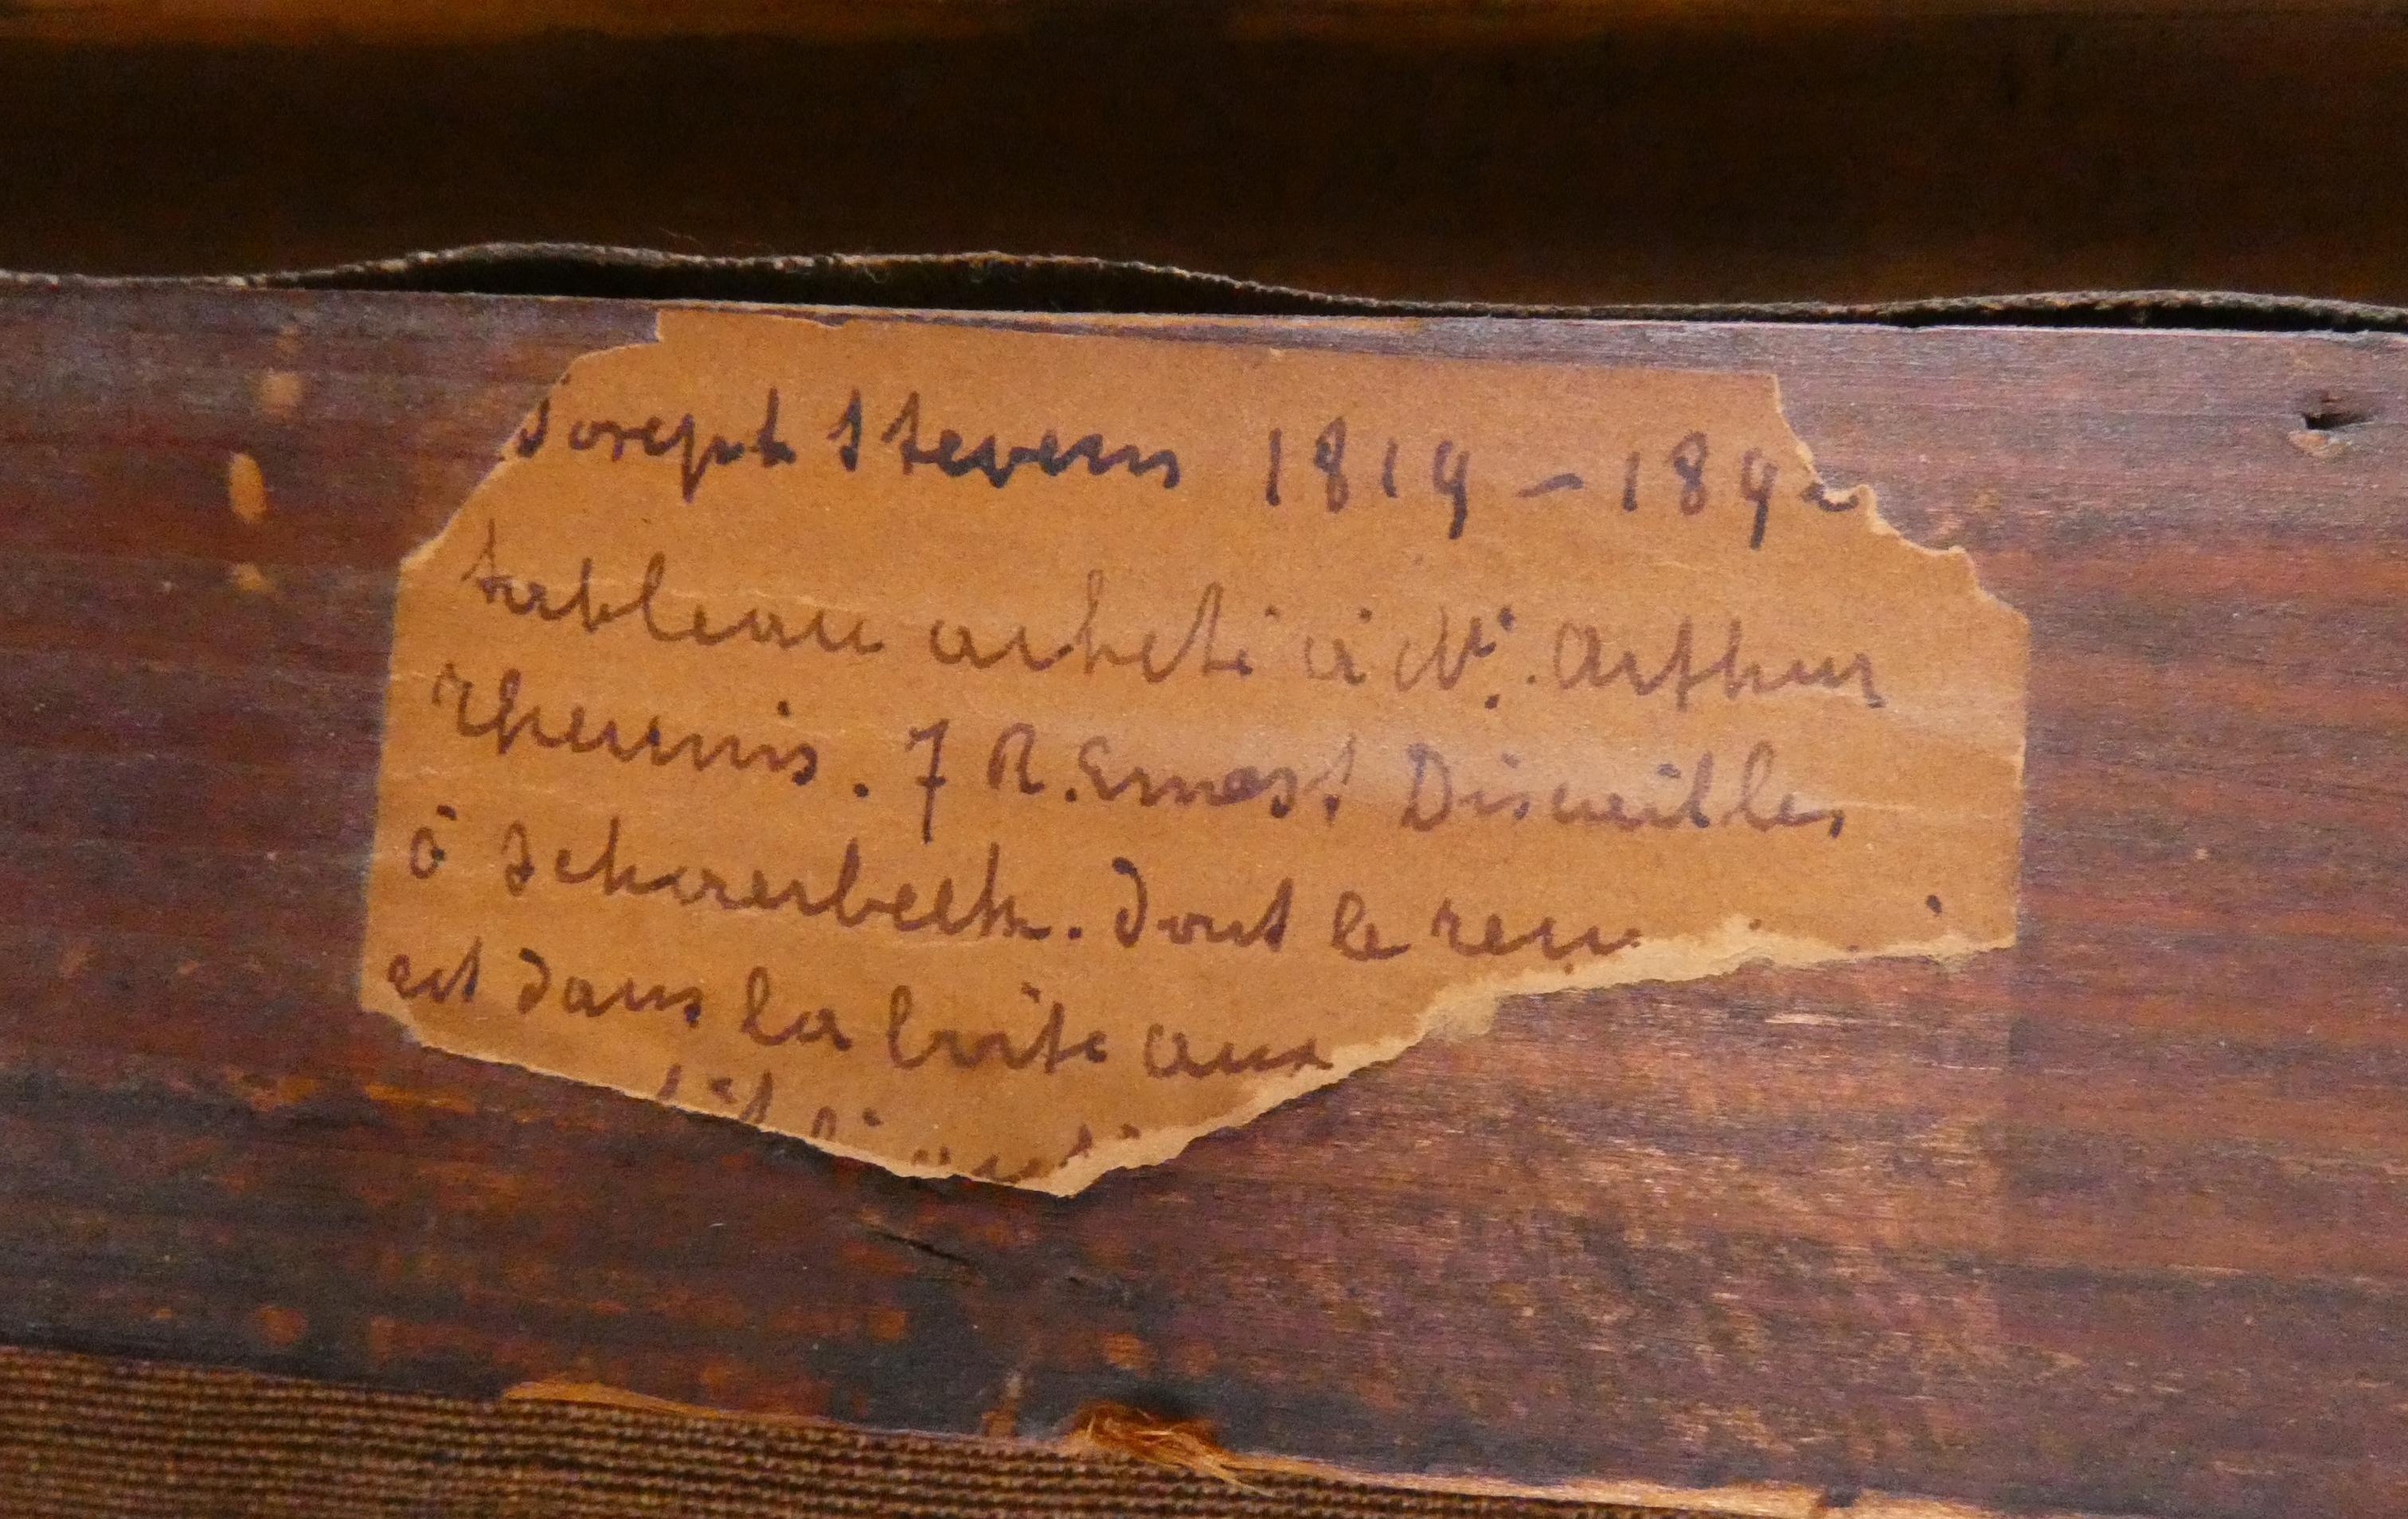 Joseph Stevens 1819 - 1892
tableau acheté à Mr. Arthur
rheumis. 7 R. Ernest Discailles
à Schaerbeek. dont le
est dans la boîte aux